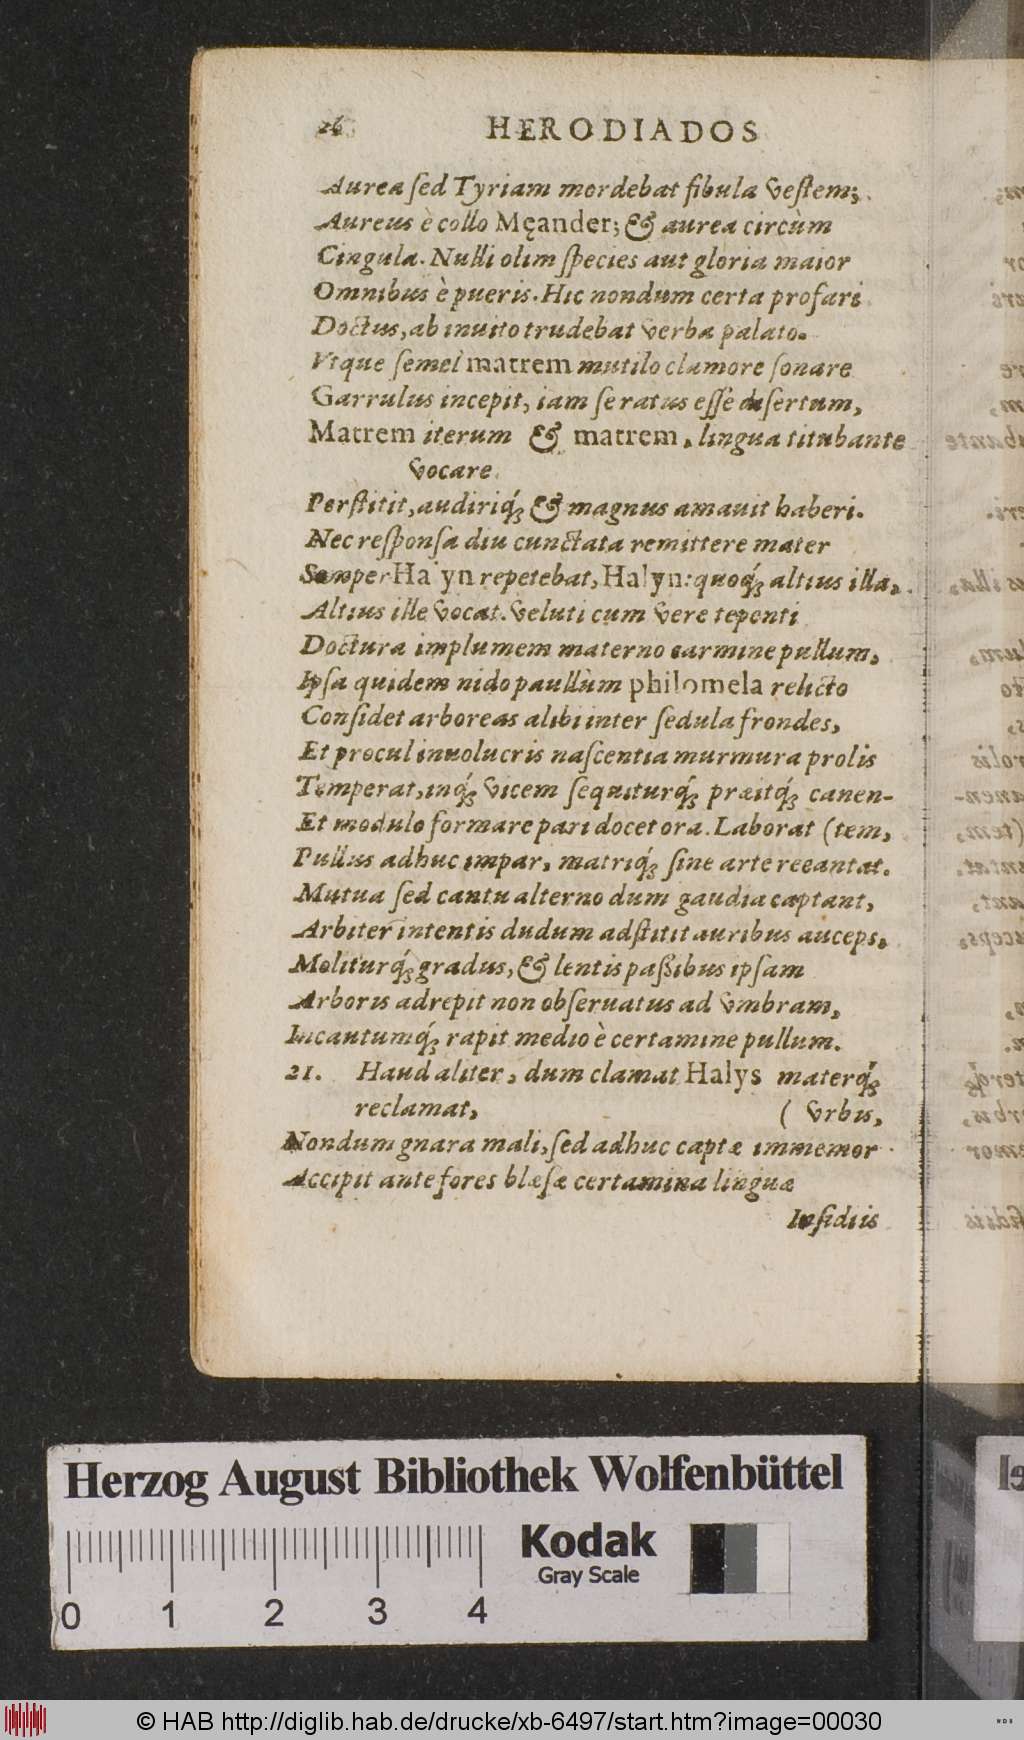 26 HERODIADOS
Aurea ſed Tyriam mordebat fibula veſtem;
Aureus è collo Męander; & aurea circùm
Cingula. Nulli olim ſpecies aut gloria maior
Omnibus è pueris. Hic nondum certa profari
Doctus, ab inuito trudebat verba palato.
Vtque ſemel matrem mutilo clamore ſonare
Garrulus incepit, iam ſe ratus eſſe diſertum,
Matrem iterum & matrem, lingua titubante
vocare
Perſtitit, audiriq́; & magnus amauit haberi.
Nec reſponſa diu cunctata remittere mater
Semper Halyn repetebat, Halyn: quoq́; altius illa,
Altius ille vocat. veluti cum vere tepenti
Doctura implumem materno carmine pullum,
Ipſa quidem nido paullùm philomela relicto
Conſidet arboreas alibi inter ſedula frondes,
Et procul inuolucris naſcentia murmura prolis
Temperat, inq́; vicem ſequiturq́; præitq́; canen-
Et modulo formare pari docet ora. Laborat (tem,
Pullus adhuc impar, matriq́; ſine arte recantat.
Mutua ſed cantu alterno dum gaudia captant,
Arbiter intentis dudum adſtitit auribus auceps,
Moliturq́; gradus, & lentis paſſibus ipſam
Arboris adrepit non obſeruatus ad vmbram,
Incautumq́; rapit medio è certamine pullum.
21. Haud aliter, dum clamat Halys materq́;
reclamat, ( vrbis,
Nondum gnara mali, ſed adhuc captæ immemor
Accipit ante fores blæſæ certamina linguæ
Inſidiis
Herzog August Bibliothek Wolfenbüttel
Kodak
Gray Scale
0 1 2 3 4
© HAB http://diglib.hab.de/drucke/xb-6497/start.htm?image=00030